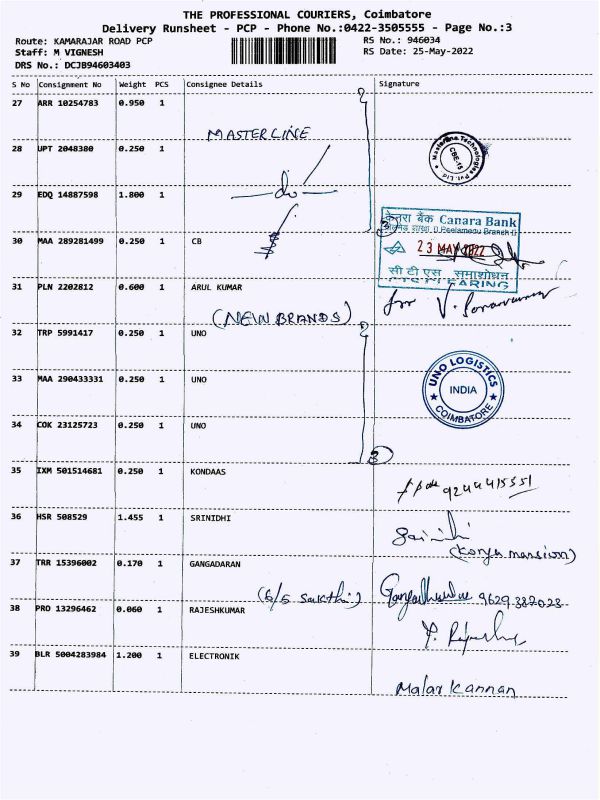 THE PROFESSIONAL COURIERS, Coimbatore
Delivery Runsheet - PCP - Phone No.:0422-3505555 - Page No.:3
Route: KAMARAJAR ROAD PCP RS No.: 946034
Staff: M VIGNESH RS Date: 25-May-2022
DRS No.: DCJB94603403
S No Consignment No Weight PCS Consignee Details Signature
27 ARR 10254783 0.950 1
MASTERLINE
28 UPT 2048380 0.250 1
Masterline Technologies Pvt. Ltd
CBE-15
29 EDQ 14887598 1.800 1
do
3
केनरा बैंक Canara Bank
Peelamedu Branch
30 MAA 289281499 0.250 1 CB
23 MAY 2022
सी टी एस समाशोधन
CTS CLEARING
31 PLN 2202812 0.600 1 ARUL KUMAR
(NEW BRANDS)
for V.
32 TRP 5991417 0.250 1 UNO
33 MAA 290433331 0.250 1 UNO
UNO LOGISTICS
INDIA
COIMBATORE
34 COK 23125723 0.250 1 UNO
3
35 IXM 501514681 0.250 1 KONDAAS
9244415551
36 HSR 508529 1.455 1 SRINIDHI
Sainidhi
(Konya mansion)
37 TRR 15396002 0.170 1 GANGADARAN
(S/S Sakthi) 9629382028
38 PRO 13296462 0.060 1 RAJESHKUMAR
39 BLR 5004283984 1.200 1 ELECTRONIK
Malar Kannan